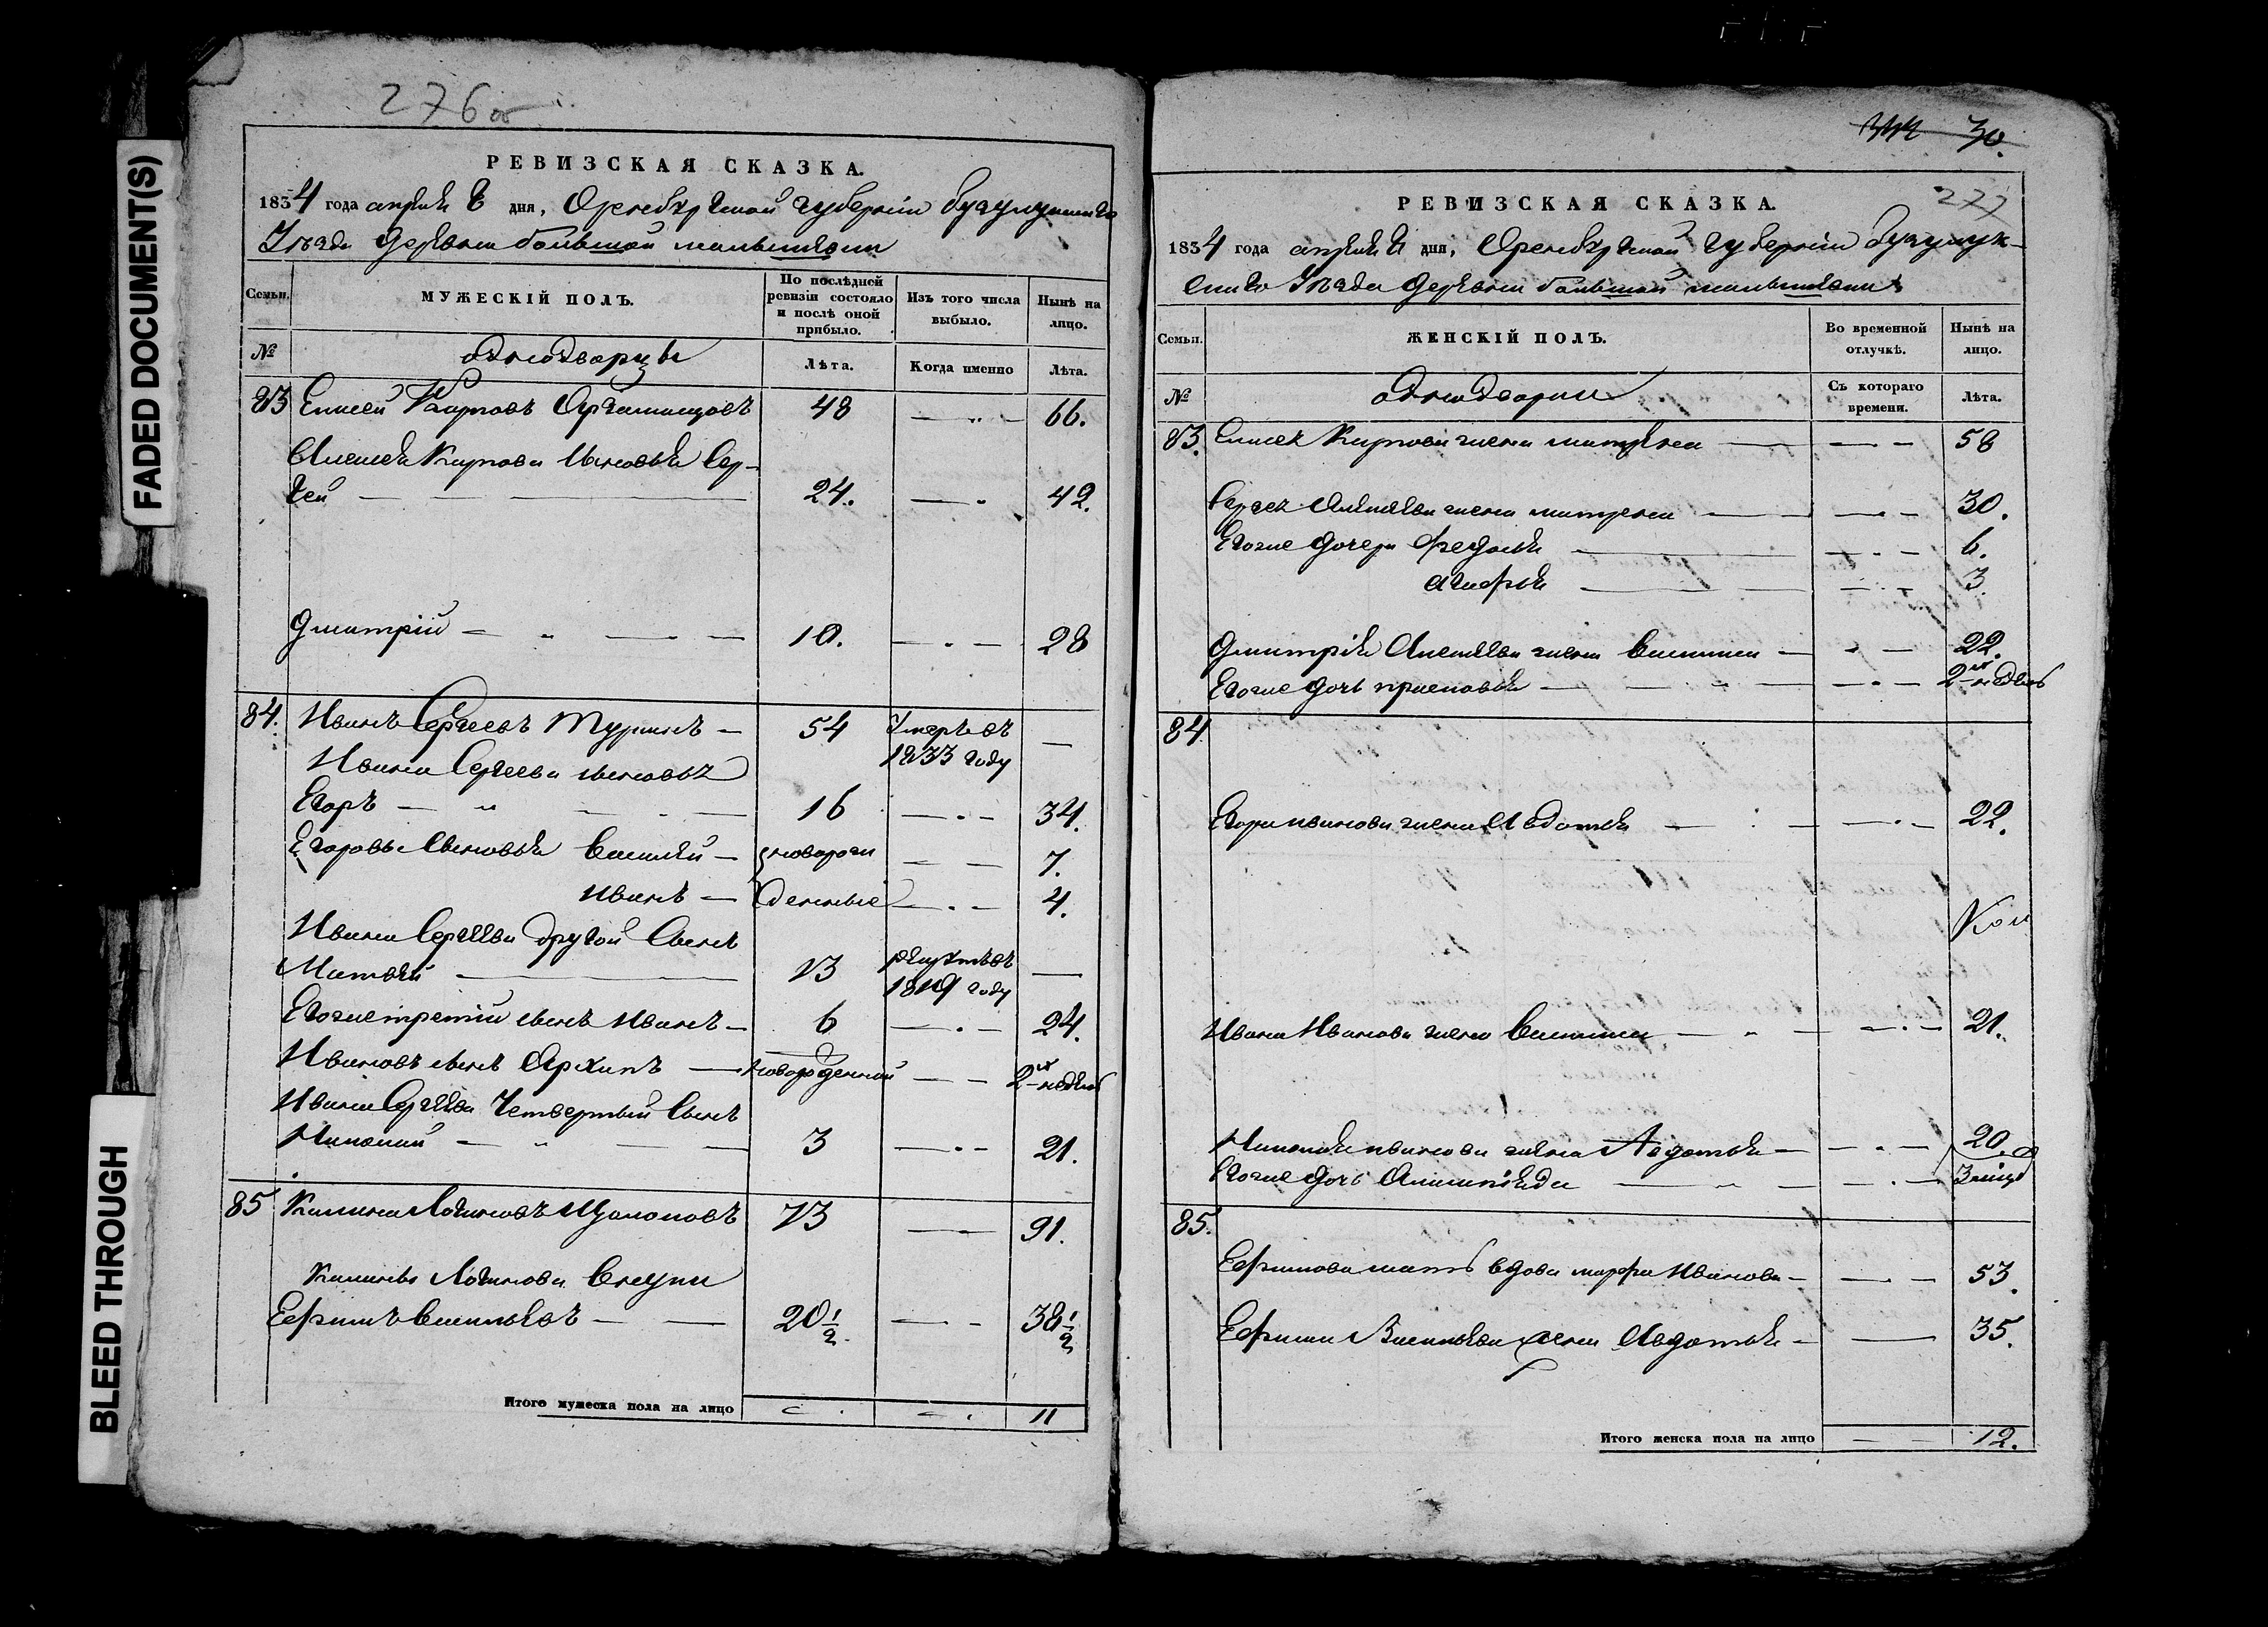 FADED DOCUMENT(S)
BLEED THROUGH
276 об
РЕВИЗСКАЯ СКАЗКА.
1834 года апреля 8 дня, Оренбургской губернии Бугульминского
Уезда деревни большой
Семьи.
МУЖЕСКІЙ ПОЛЪ.
По послѣдней ревизіи состояло и послѣ оной прибыло.
Изъ того числа выбыло.
Нынѣ на лицо.
№
однодворцы
Лѣта.
Когда именно
Лѣта.
83 Елисей Карповъ 48 — 66.
Алексея Карпова сыновья Сер-
гей — 24. — 42.
Дмитрій — 10. — 28
84. Иванъ Сергеевъ Туринъ — 54 Умеръ въ 1833 году —
Ивана Сергеева сыновья
Егоръ — 16 — 34.
Егоровы сыновья Василей — новорож — 7.
Иванъ — денные — 4.
Ивана Сергеева другой сынъ
Матвей — 13 въ 1819 году —
Егоже третій сынъ Иванъ — 6 — 24.
Ивановъ сынъ Архипъ — новорожденной — 2хъ недель
Ивана Сергеева Четвертый сынъ
3 — 21.
85 Калина Логиновъ 73 — 91.
Калины Логинова внукъ
Ефимъ Васильевъ — 20 1/2 — 38 1/2
Итого мужеска пола на лицо 11
30.
277
РЕВИЗСКАЯ СКАЗКА.
1834 года апреля 8 дня, Оренбургской губернии
Уезда деревни большой
Семьи.
ЖЕНСКІЙ ПОЛЪ.
Во временной отлучкѣ.
Нынѣ на лицо.
№
однодворки
Съ котораго времени.
Лѣта.
83. Елисея Карпова жена Матрена — 58
Сергея Алексеева жена Матрена — 30.
Егоже дочери Федосья — 6.
3
Дмитрія Алексеева жена — 22.
Егоже дочь Прасковья — 2хъ недель
84
Егора Иванова жена Авдотья — 22.
Ивана Иванова жена — 21.
Иванова жена Авдотья — 20.
Егоже дочь — 3
85.
Ефимова мать вдова Марфа Иванова — 53.
Ефима Васильева жена Авдотья — 35.
Итого женска пола на лицо 12.